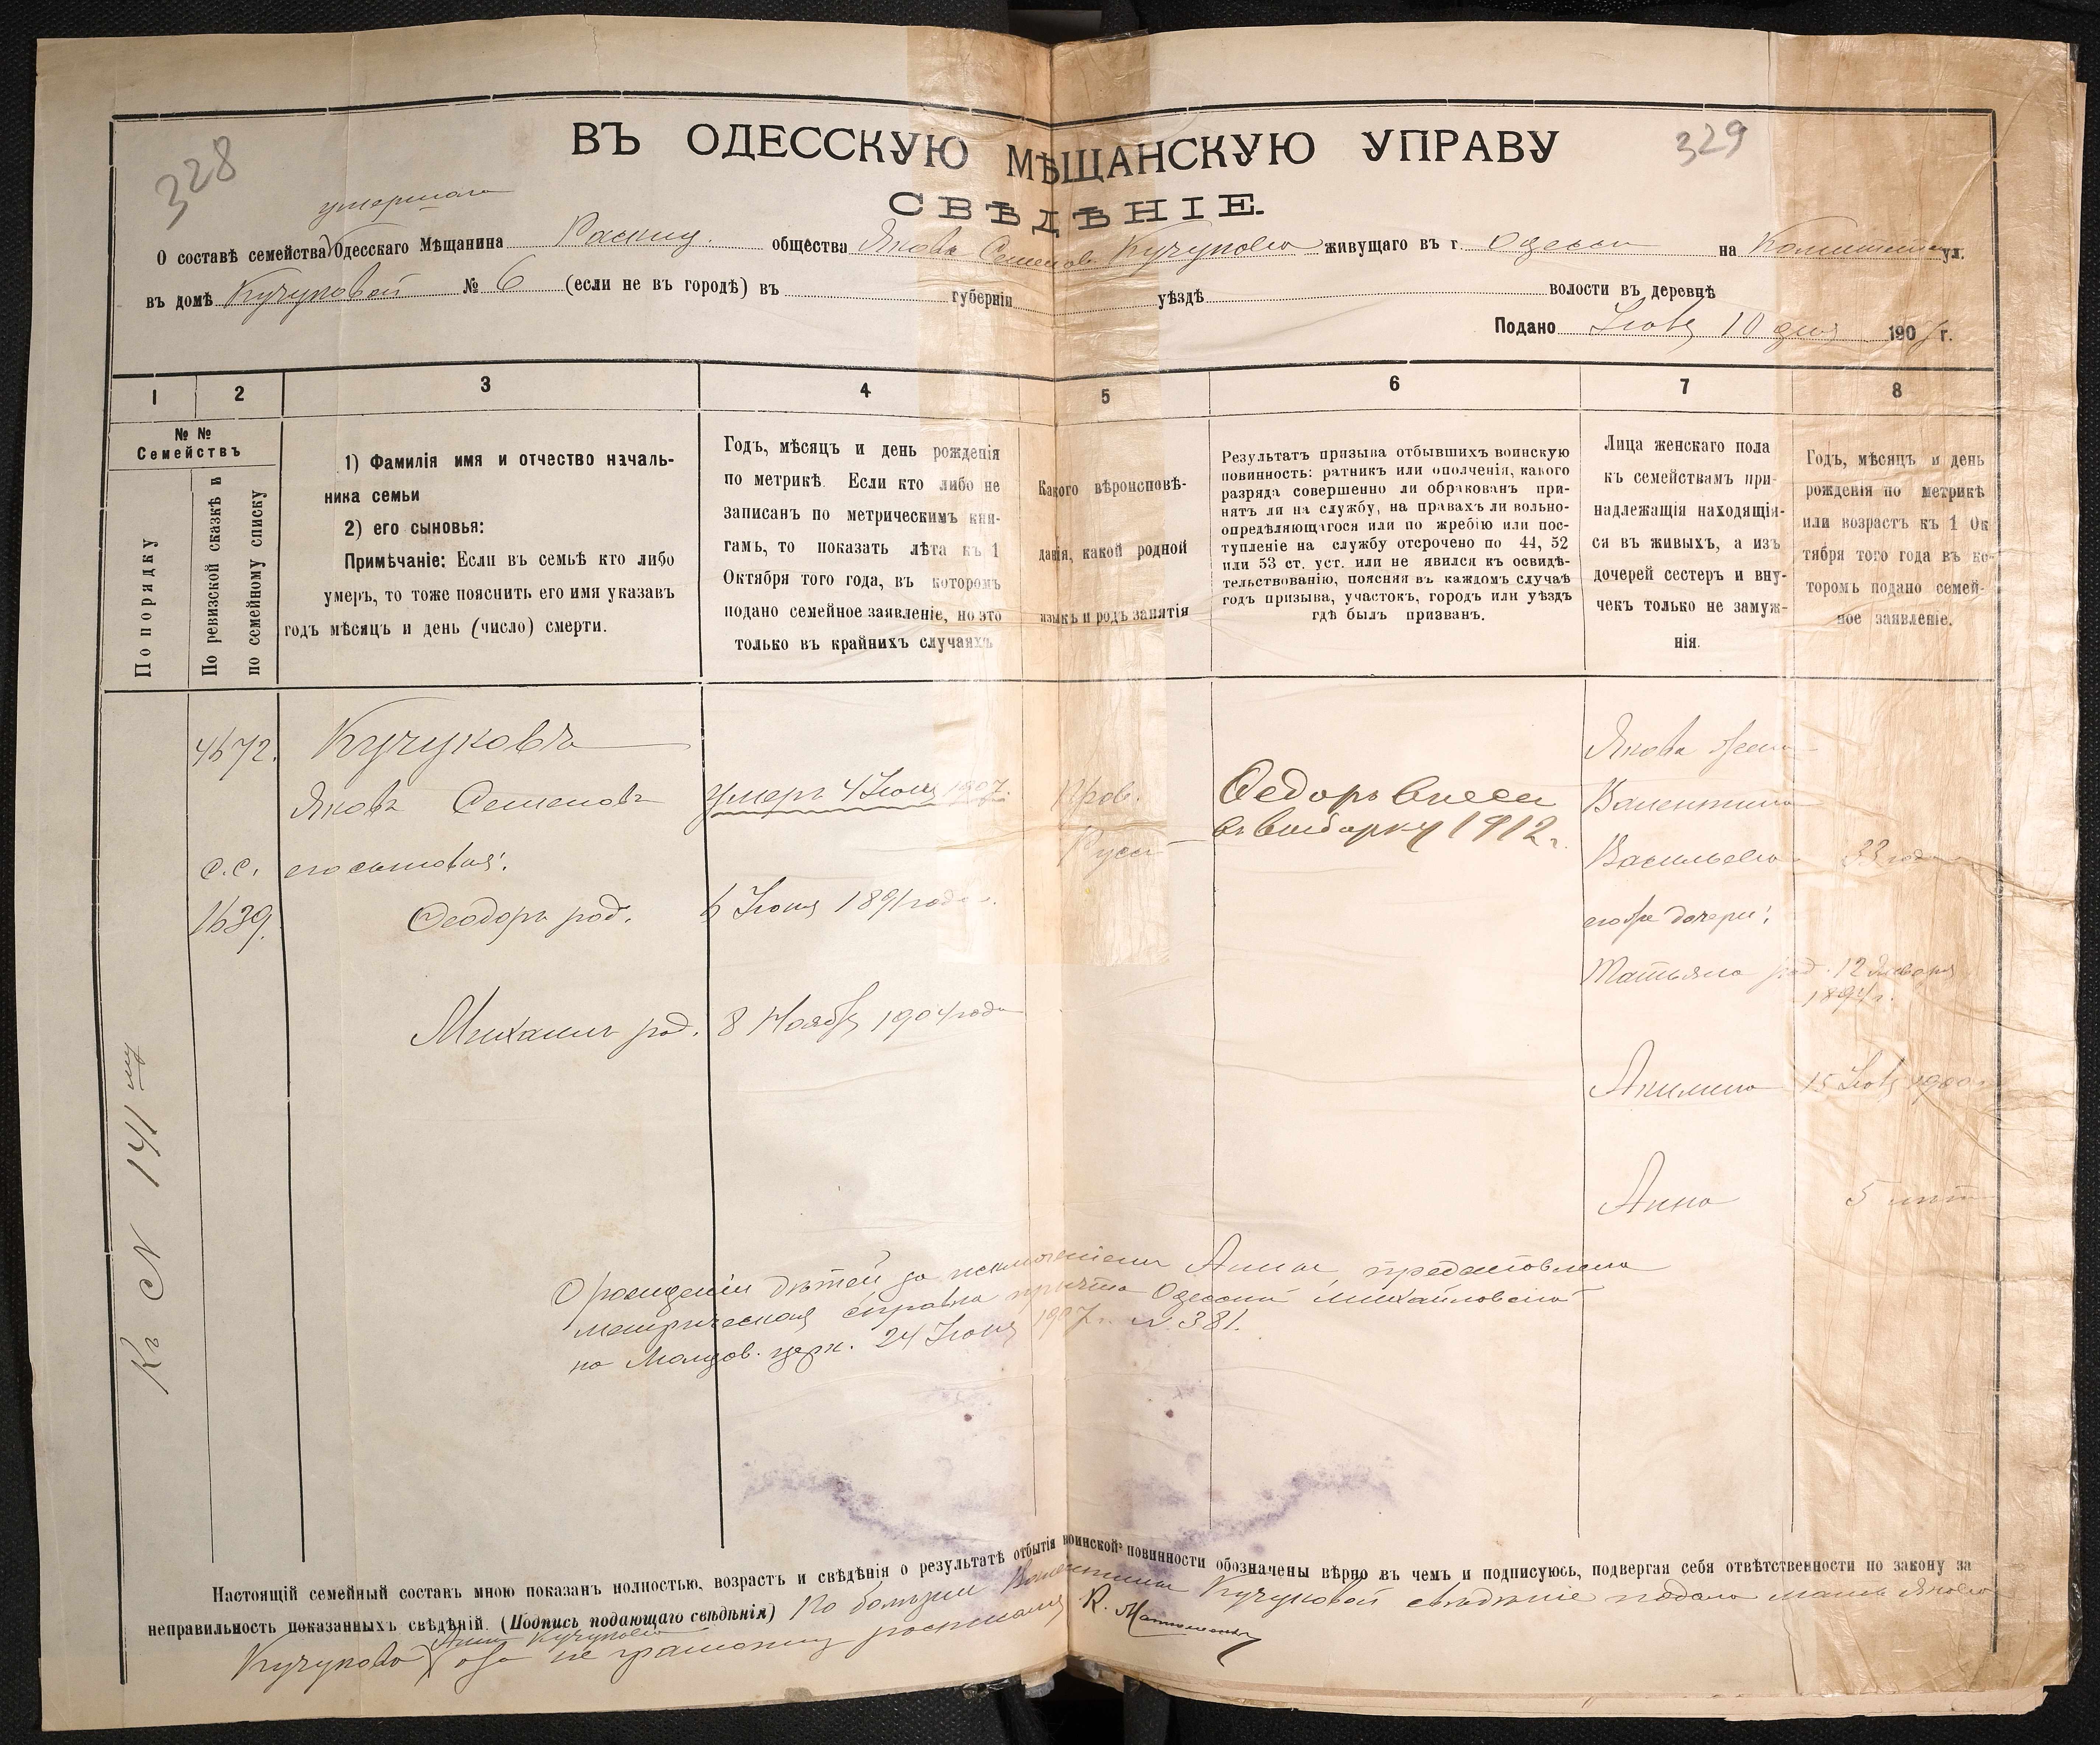 328
329
ВЪ ОДЕССКУЮ МѢЩАНСКУЮ УПРАВУ
СВѢДѢНІЕ.
умершаго
О составѣ семейства Одесскаго Мѣщанина Расхид. общества Якова Семенов. Кучукова живущаго въ г. Одессѣ на ул.
въ домѣ Кучуковой № 6 (если не въ городѣ) въ губерніи уѣздѣ волости въ деревнѣ
Подано Іюля 10 дня 1907 г.
1 2 3 4 5 6 7 8
№ № Семействъ
По порядку
По ревизской сказкѣ и
по семейному списку
1) Фамилія имя и отчество началь-
ника семьи
2) его сыновья:
Примѣчаніе: Если въ семьѣ кто либо
умеръ, то тоже пояснить его имя указавъ
годъ мѣсяцъ и день (число) смерти.
Годъ, мѣсяцъ и день рожденія
по метрикѣ. Если кто либо не
записанъ по метрическимъ кни-
гамъ, то показать лѣта къ 1
Октября того года, въ которомъ
подано семейное заявленіе, но это
только въ крайнихъ случаяхъ
Какого вѣроисповѣ-
данія, какой родной
языкъ и родъ занятія
Результатъ призыва отбывшихъ воинскую
повинность: ратникъ или ополченія, какого
разряда совершенно ли обракованъ при-
нятъ ли на службу, на правахъ ли вольно-
опредѣляющагося или по жребію или пос-
тупленіе на службу отсрочено по 44, 52
или 53 ст. уст. или не явился къ освидѣ-
тельствованію, поясняя въ каждомъ случаѣ
годъ призыва, участокъ, городъ или уѣздъ
гдѣ былъ призванъ.
Лица женскаго пола
къ семействамъ при-
надлежащія находящія-
ся въ живыхъ, а изъ
дочерей сестеръ и вну-
чекъ только не замуж-
нія.
Годъ, мѣсяцъ и день
рожденія по метрикѣ
или возрастъ къ 1 Ок
тября того года въ ко-
торомъ подано семей-
ное заявленіе.
4672. Кучуковъ
Яковъ Семеновъ умеръ 4 Іюня 1907. Прав.
Русск
Федоръ внесен
въ выборку 1912 г.
Якова жена
Валентина
Васильева 33 года
с.с. его сыновья:
1639. Феодоръ род. 6 Іюня 1891 года.
его же дочери:
Татьяна род. 12 Января
1894 г.
Михаилъ род. 8 Ноября 1904 года
Акилина 15 Іюля 1900
Анна 5 лѣтъ
Къ N 141
О рожденіи дѣтей за исключеніемъ Анны представлена
метрическая справка причта Одесской Михайловской
на Молдов. церк. 24 Іюня 1907 г. N. 381.
Настоящій семейный составъ мною показанъ полностью, возрастъ и свѣдѣнія о результатѣ отбытія воинской повинности обозначены вѣрно въ чемъ и подписуюсь, подвергая себя отвѣтственности по закону за
неправильность показанныхъ свѣдѣній. (Подпись подающаго свѣдѣнія) По болѣзни Валентины Кучуковой свѣдѣніе подала мать Якова
Анна Кучукова
Кучукова а за не грамотную росписался